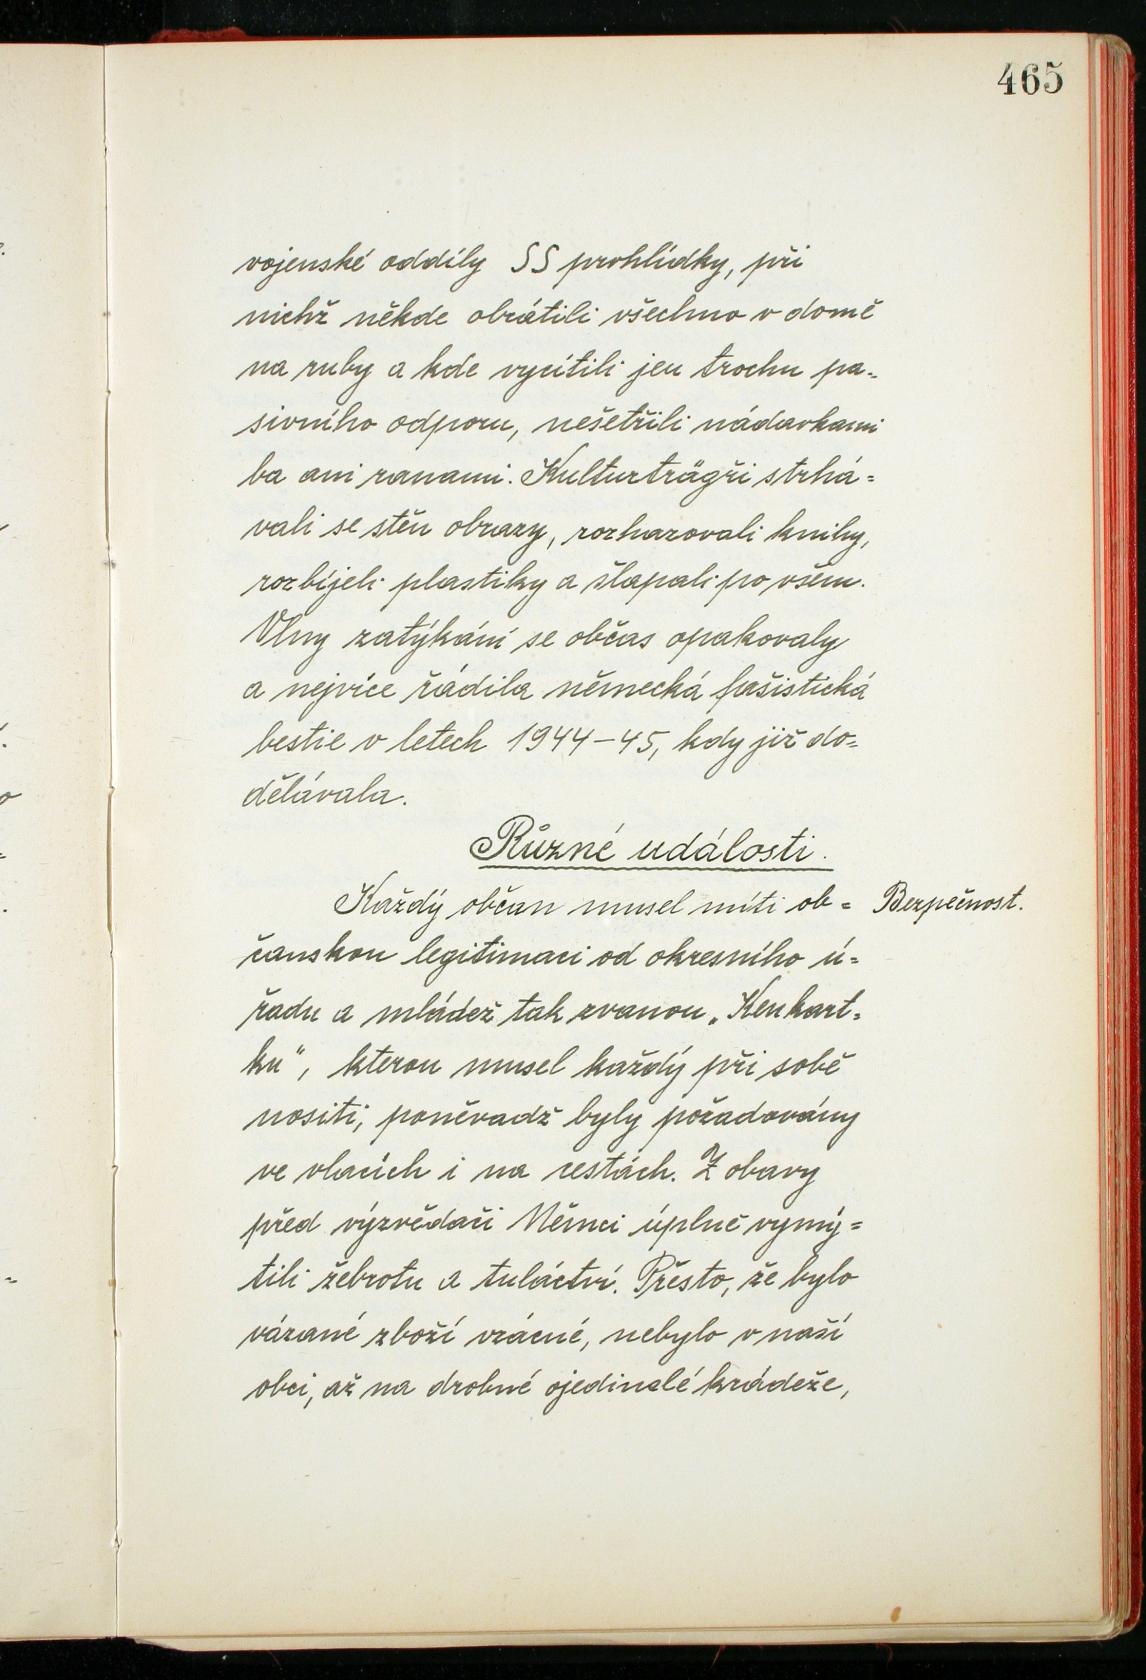 465
vojenské oddíly SS prohlídky, při
nichž někde obrátili všechno v domě
na ruby a kde vycítili jen trochu pa-
sivního odporu, nešetřili nádavkami
ba ani ranami. Kulturträgři strhá=
vali se stěn obrazy, rozhazovali knihy,
rozbíjeli plastiky a šlapali po všem.
Vlny zatýkání se občas opakovaly
a nejvíce řádila německá fašistická
bestie v letech 1944-45, kdy již do=
dělávala.
Různé události.
Každý občan musel míti ob= Bezpečnost.
čanskou legitimaci od okresního ú=
řadu a mládež tak zvanou „Kenkart=
ku", kterou musel každý při sobě
nositi, poněvadž byly požadovány
ve vlacích i na cestách. Z obavy
před vyzvědači Němci úplně vymý=
tili žebrotu a tuláctví. Přesto, že bylo
vázané zboží vzácné, nebylo v naší
obci, až na drobné ojedinělé krádeže,